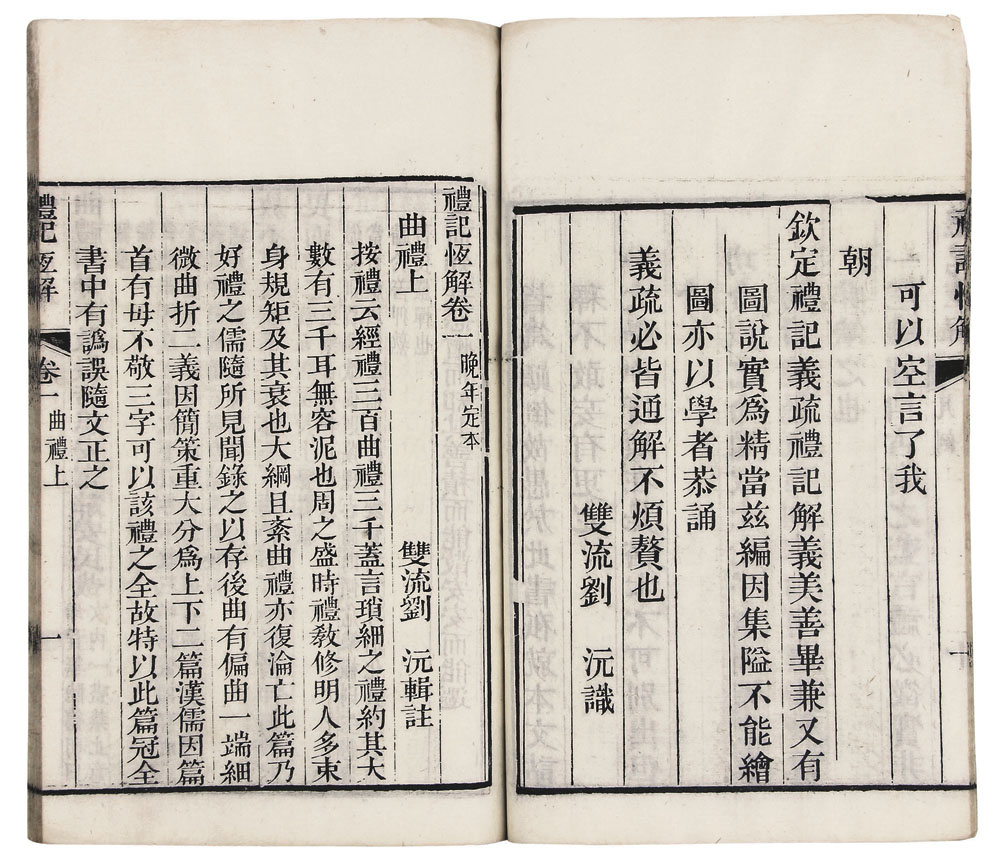 禮記恆解
十
可以空言了我
朝
欽定禮記義疏禮記解義美善畢兼又有
圖說實爲精當兹編因集隘不能繪
圖亦以學者恭誦
義疏必皆通解不煩贅也
雙流劉 沅識
禮記恆解卷一 晚年定本
曲禮上 雙流劉 沅輯註
按禮云經禮三百曲禮三千蓋言瑣細之禮約其大
數有三千耳無容泥也周之盛時禮教修明人多束
身規矩及其衰也大綱且紊曲禮亦復淪亡此篇乃
好禮之儒隨所見聞錄之以存後曲有偏曲一端細
微曲折二義因簡策重大分爲上下二篇漢儒因篇
首有毋不敬三字可以該禮之全故特以此篇冠全
書中有譌誤隨文正之
禮記恆解 卷一 曲禮上 一